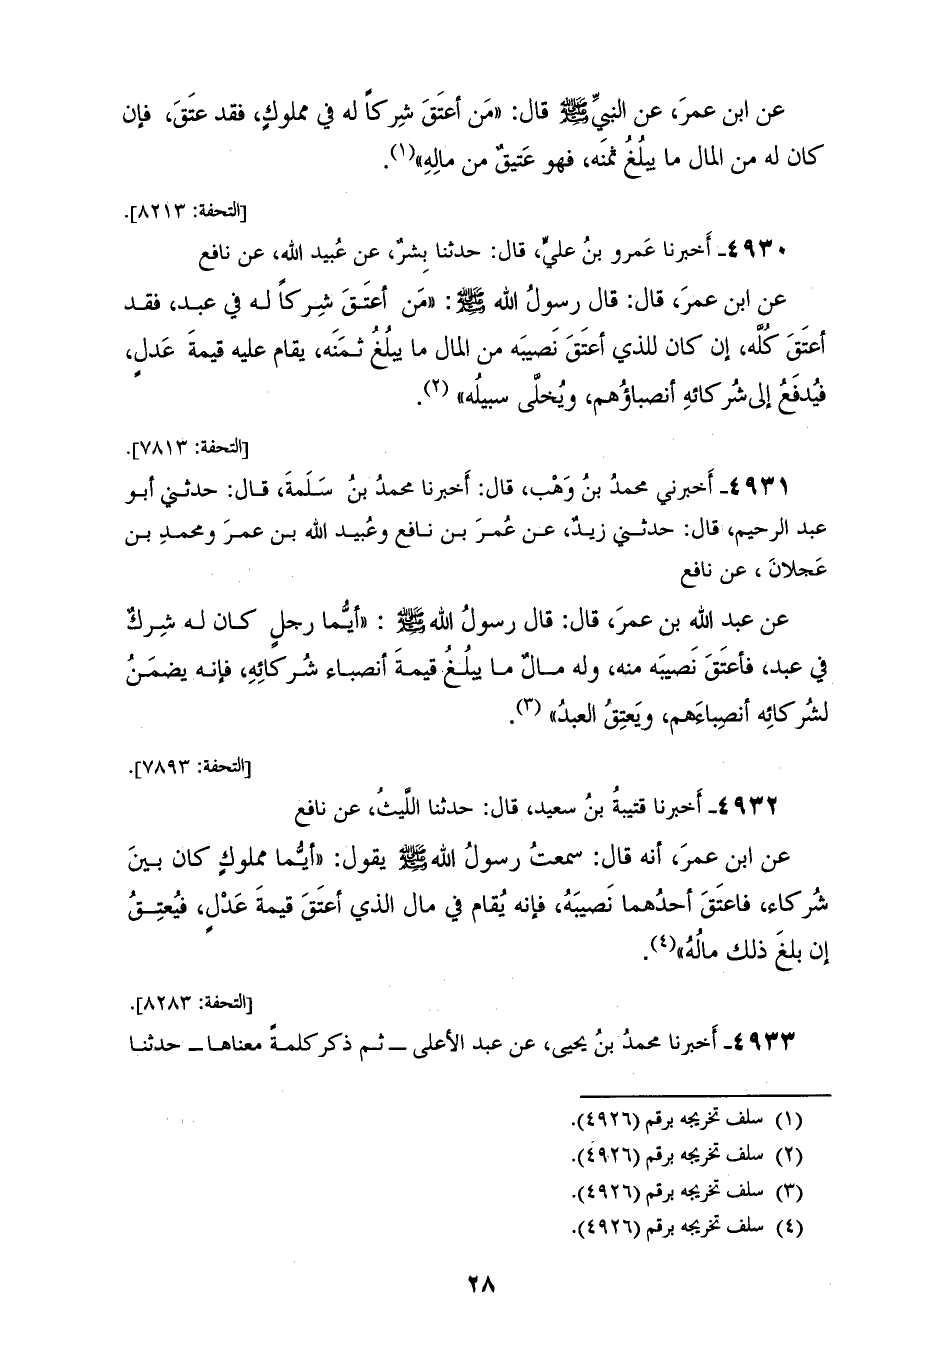 عن ابن عمرَ، عن النبيِّ ﷺ قال: «مَن أعتَقَ شِركاً له في مملوكٍ، فقد عتَقَ، فإن
كان له من المال ما يبلُغُ ثمنَه، فهو عَتيقٌ من مالِهِ»(١).
[التحفة: ٨٢١٣].
٤٩٣٠ـ أَخبرنا عَمرو بنُ عليٍّ، قال: حدثنا بِشرٌ، عن عُبيد الله، عن نافع
عن ابن عمرَ، قال: قال رسولُ الله ﷺ: «مَن أعتَقَ شِركاً له في عبد، فقد
أعتَقَ كُلَّه، إن كان للذي أعتَقَ نَصيبَه من المال ما يبلُغُ ثمنَه، يقام عليه قيمةَ عَدلٍ،
فيُدفَعُ إلى شُركائهِ أنصباؤُهم، ويُخلَّى سبيلُه» (٢).
[التحفة: ٧٨١٣].
٤٩٣١ـ أَخبرني محمدُ بنُ وَهْب، قال: أَخبرنا محمدُ بنُ سَلَمةَ، قال: حدثني أبو
عبد الرحيم، قال: حدثني زيدٌ، عن عُمرَ بن نافع وعُبيد الله بن عمرَ ومحمدِ بن
عَجلانَ ، عن نافع
عن عبد الله بن عمرَ، قال: قال رسولُ الله ﷺ : «أيُّما رجلٍ كان له شِركٌ
في عبد، فأعتَقَ نَصيبَه منه، وله مالٌ ما يبلُغُ قيمةَ أنصباء شُركائِهِ، فإنه يضمَنُ
لشُركائِه أنصِباءَهم، ويَعتِقُ العبدُ» (٣).
[التحفة: ٧٨٩٣].
٤٩٣٢ـ أَخبرنا قتيبةُ بنُ سعيد، قال: حدثنا اللَّيثُ، عن نافع
عن ابن عمرَ، أنه قال: سمعتُ رسولَ الله ﷺ يقول: «أيُّما مملوكٍ كان بينَ
شُركاء، فاعتَقَ أحدُهما نَصيبَهُ، فإنه يُقام في مال الذي أعتَقَ قيمةَ عَدْلٍ، فيُعتِقُ
إن بلغَ ذلك مالُهُ»(٤).
[التحفة: ٨٢٨٣].
٤٩٣٣ـ أَخبرنا محمدُ بنُ يحيى، عن عبد الأعلى ـ ثم ذكر كلمةً معناها ـ حدثنا
(١) سلف تخريجه برقم (٤٩٢٦).
(٢) سلف تخريجه برقم (٤٩٢٦).
(٣) سلف تخريجه برقم (٤٩٢٦).
(٤) سلف تخريجه برقم (٤٩٢٦).
٢٨